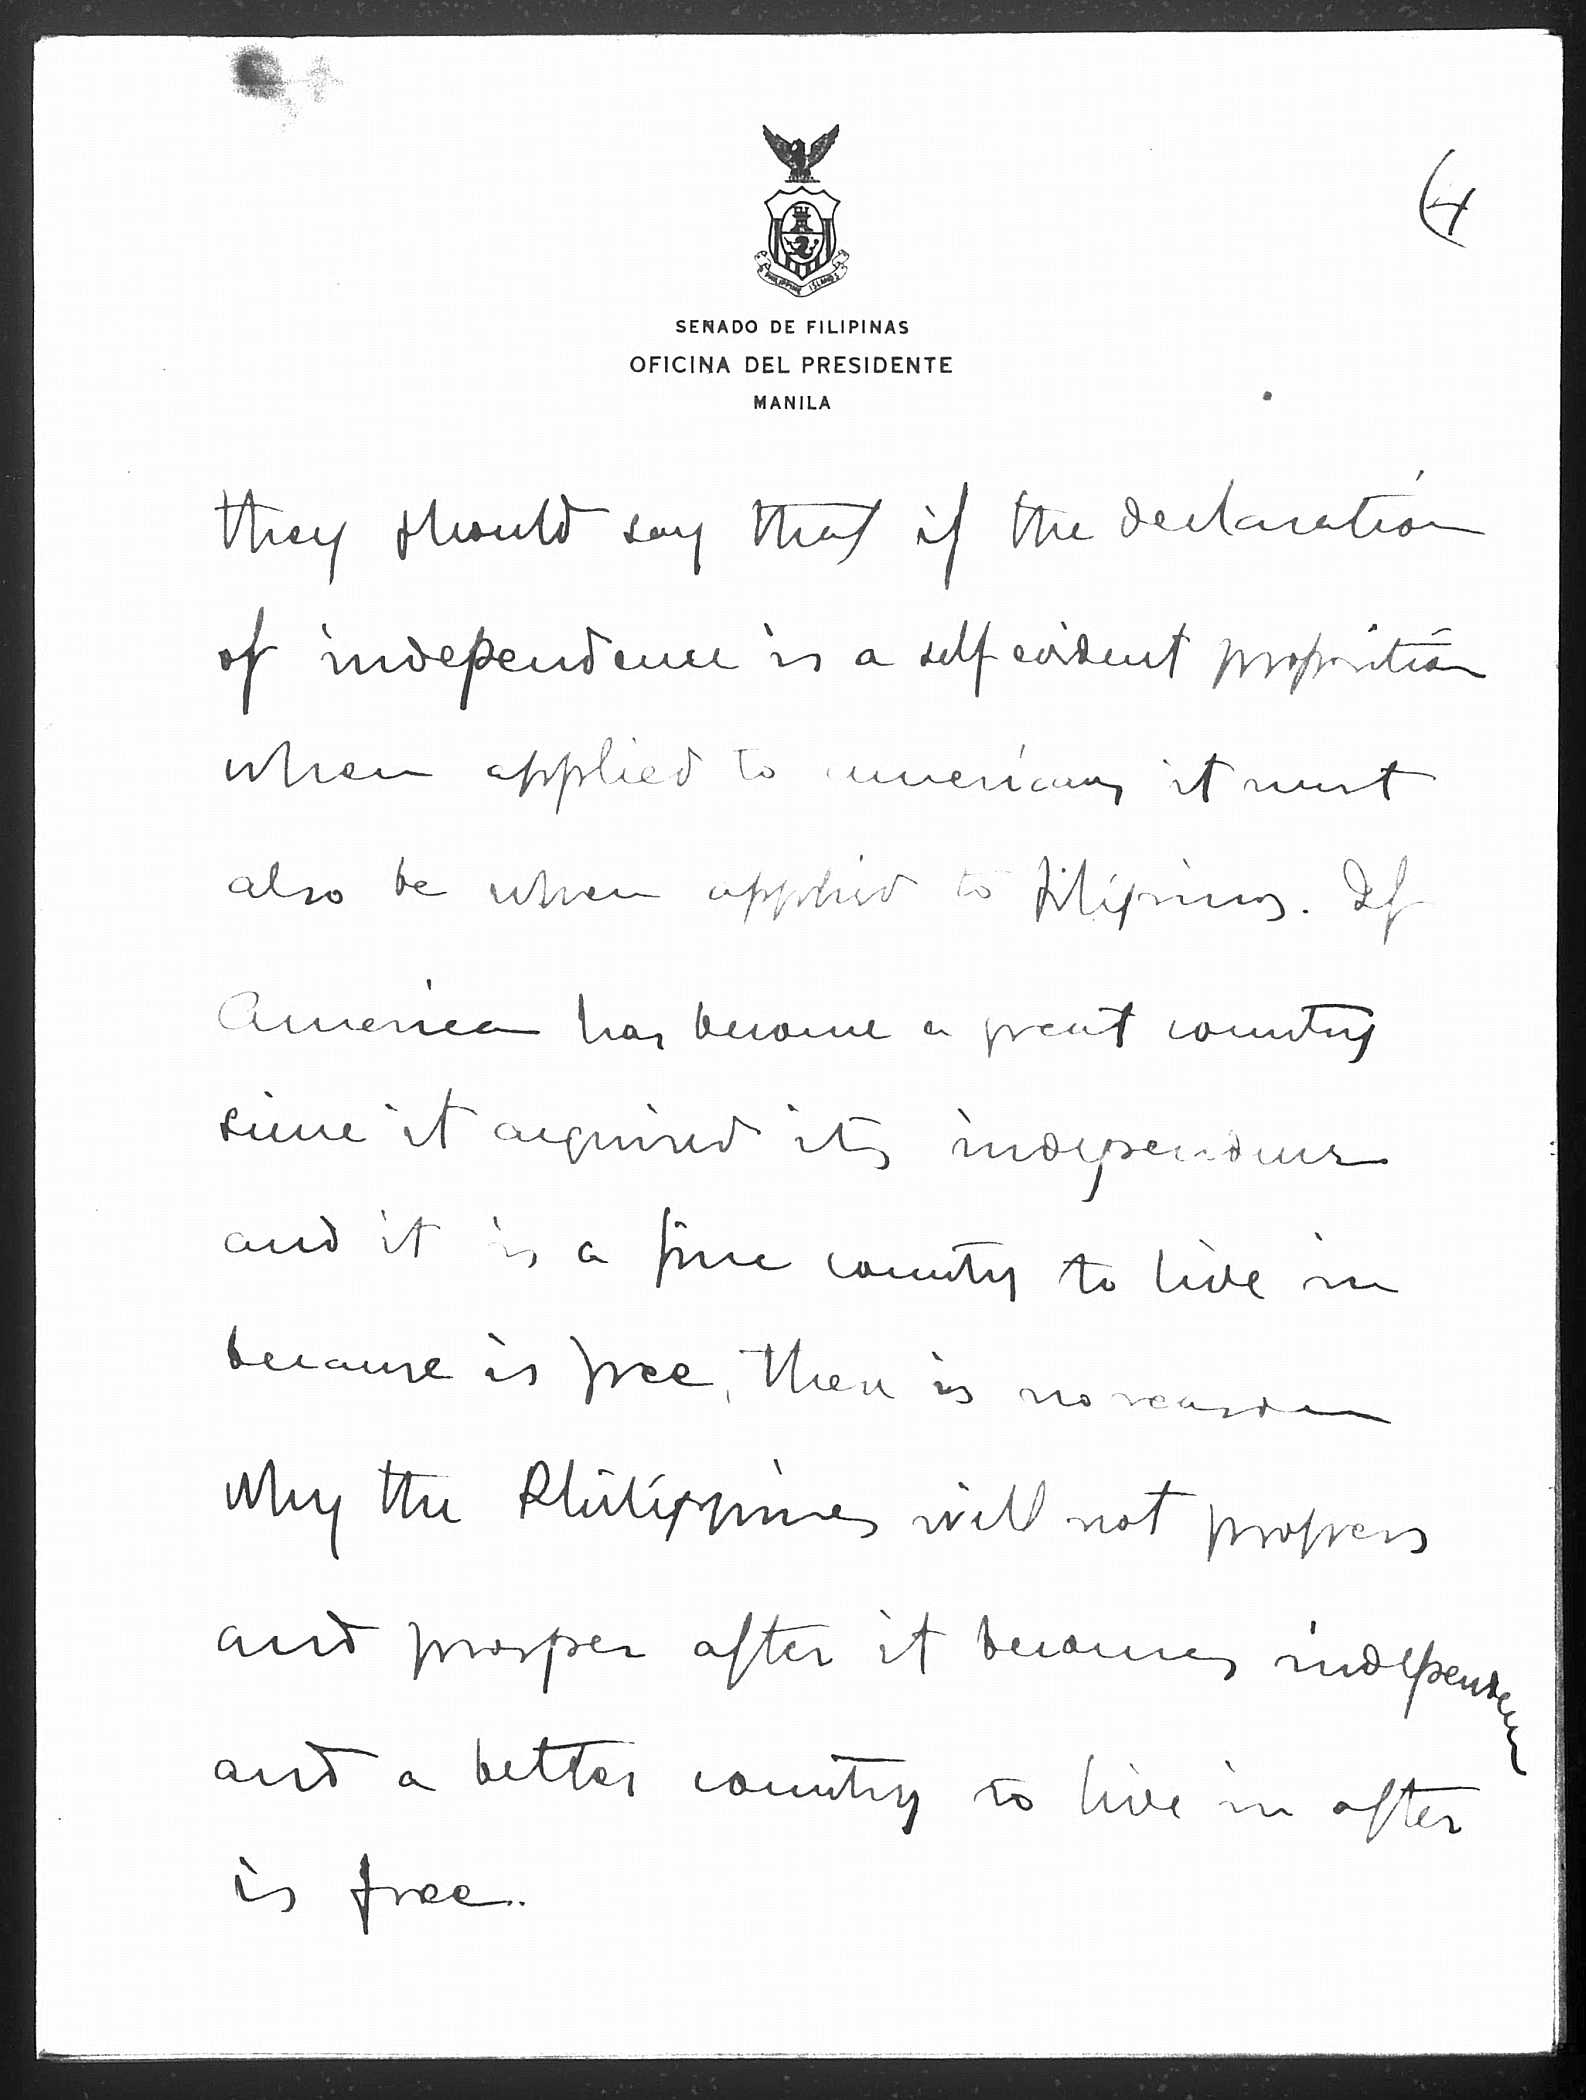 (4
PHILIPPINE ISLANDS
SENADO DE FILIPINAS
OFICINA DEL PRESIDENTE
MANILA
they should say that if the declaration
of independence is a self evident proposition
when applied to americans it must
also be when applied to Filipinos. If
America has become a great country
since it acquired its independence
and it is a fine country to live in
because is free, there is no reason
why the Philippines will not progress
and prosper after it becomes independent
and a better country to live in after
is free.